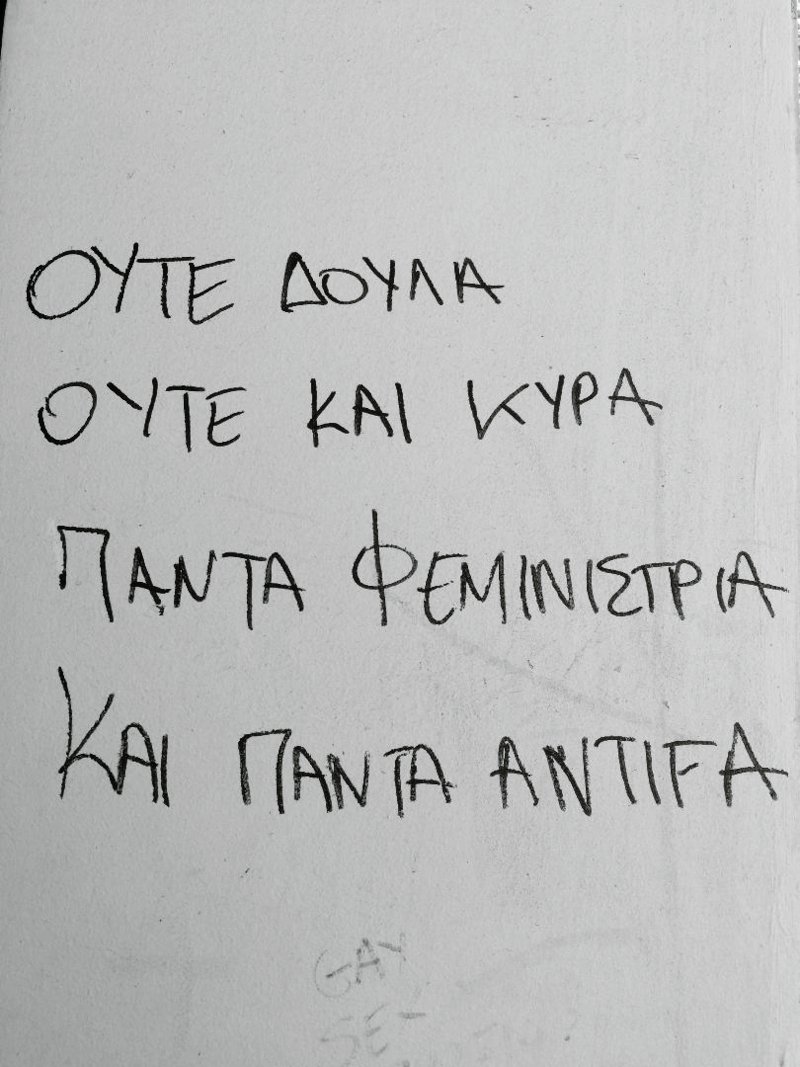 ΟΥΤΕ ΔΟΥΛΑ
ΟΥΤΕ ΚΑΙ ΚΥΡΑ
ΠΑΝΤΑ ΦΕΜΙΝΙΣΤΡΙΑ
ΚΑΙ ΠΑΝΤΑ ANTIFA
GAY